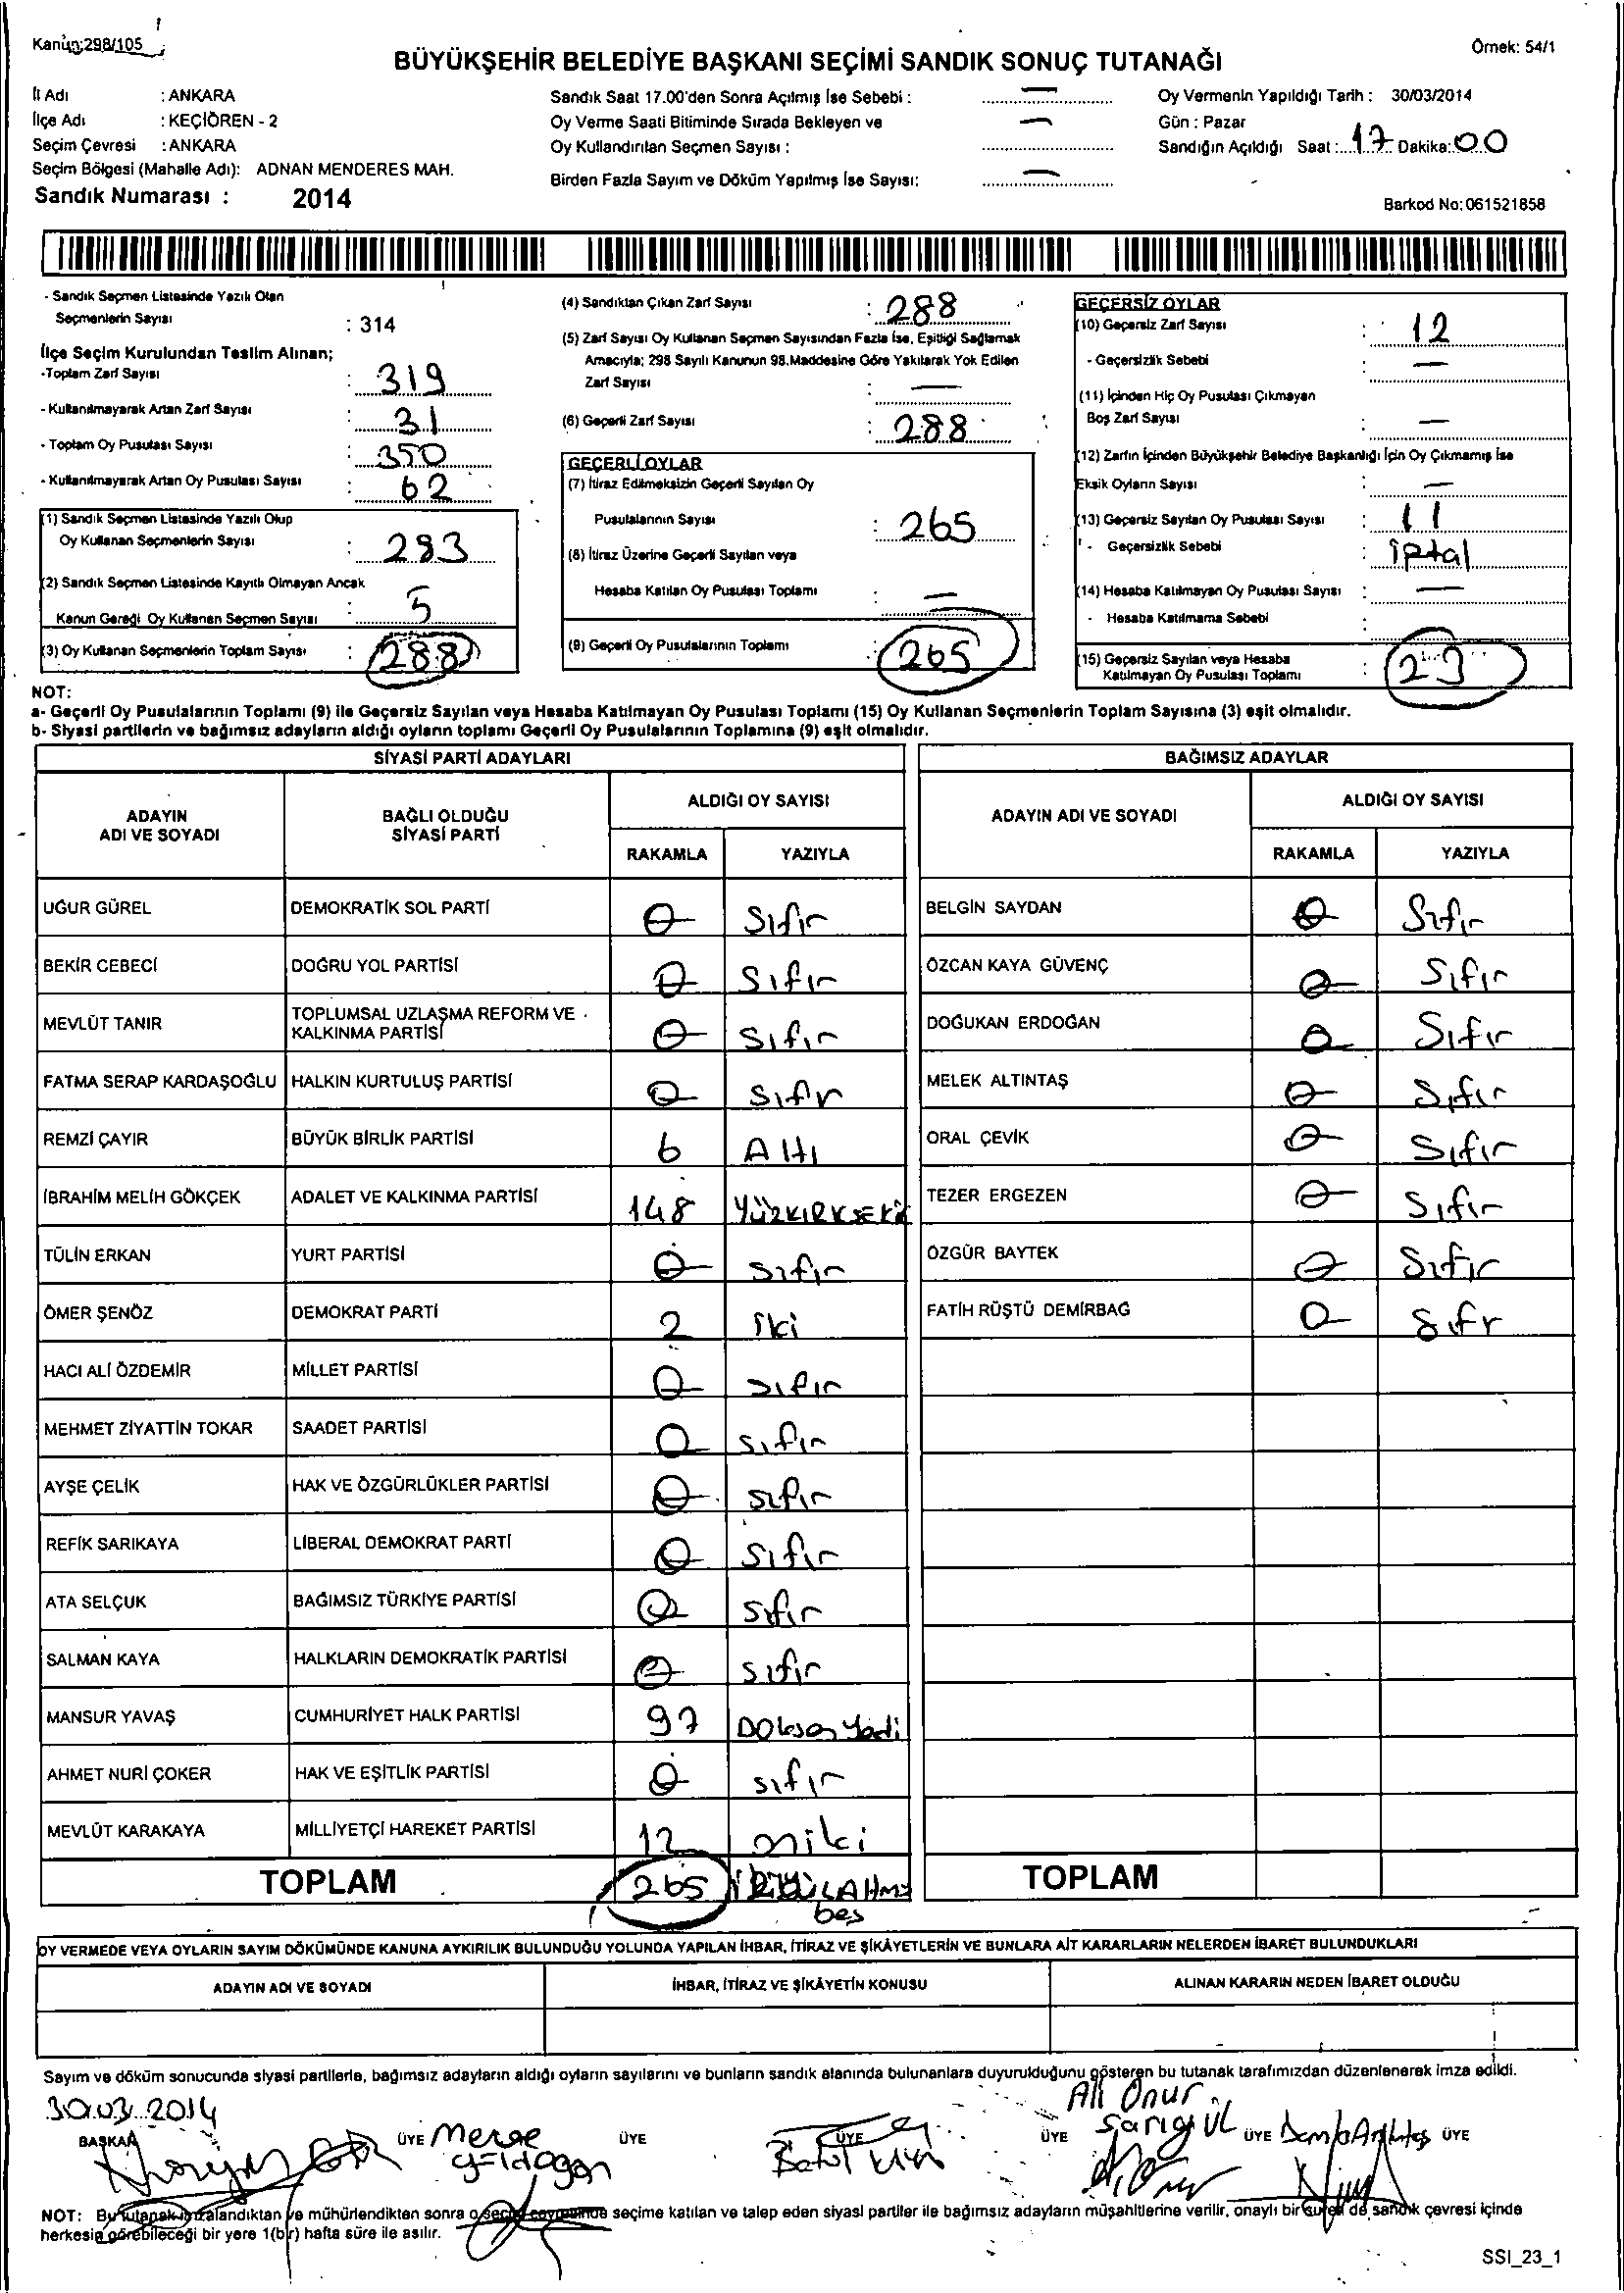 Kanun:298/105
Örnek: 54/1
BÜYÜKŞEHİR BELEDİYE BAŞKANI SEÇİMİ SANDIK SONUÇ TUTANAĞI
İl Adı : ANKARA
İlçe Adı : KEÇİÖREN - 2
Seçim Çevresi : ANKARA
Seçim Bölgesi (Mahalle Adı): ADNAN MENDERES MAH.
Sandık Numarası : 2014
Sandık Saat 17.00'den Sonra Açılmış İse Sebebi : —
Oy Verme Saati Bitiminde Sırada Bekleyen ve —
Oy Kullandırılan Seçmen Sayısı :
Birden Fazla Sayım ve Döküm Yapılmış İse Sayısı: —
Oy Vermenin Yapıldığı Tarih : 30/03/2014
Gün : Pazar
Sandığın Açıldığı Saat : 17 Dakika: 00
Barkod No: 061521858
- Sandık Seçmen Listesinde Yazılı Olan
Seçmenlerin Sayısı : 314
İlçe Seçim Kurulundan Teslim Alınan;
-Toplam Zarf Sayısı : 319
- Kullanılmayarak Artan Zarf Sayısı : 31
- Toplam Oy Pusulası Sayısı : 350
- Kullanılmayarak Artan Oy Pusulası Sayısı : 62
(1) Sandık Seçmen Listesinde Yazılı Olup
Oy Kullanan Seçmenlerin Sayısı : 283
(2) Sandık Seçmen Listesinde Kayıtlı Olmayan Ancak
Kanun Gereği Oy Kullanan Seçmen Sayısı : 5
(3) Oy Kullanan Seçmenlerin Toplam Sayısı : 288
(4) Sandıktan Çıkan Zarf Sayısı : 288
(5) Zarf Sayısı Oy Kullanan Seçmen Sayısından Fazla İse, Eşitliği Sağlamak
Amacıyla; 298 Sayılı Kanunun 98.Maddesine Göre Yakılarak Yok Edilen
Zarf Sayısı : —
(6) Geçerli Zarf Sayısı : 288
GEÇERLİ OYLAR
(7) İtiraz Edilmeksizin Geçerli Sayılan Oy
Pusulalarının Sayısı : 265
(8) İtiraz Üzerine Geçerli Sayılan veya
Hesaba Katılan Oy Pusulası Toplamı : —
(9) Geçerli Oy Pusulalarının Toplamı : 265
GEÇERSİZ OYLAR
(10) Geçersiz Zarf Sayısı : 12
- Geçersizlik Sebebi : —
(11) İçinden Hiç Oy Pusulası Çıkmayan
Boş Zarf Sayısı : —
(12) Zarfın İçinden Büyükşehir Belediye Başkanlığı İçin Oy Çıkmamış İse
Eksik Oyların Sayısı : —
(13) Geçersiz Sayılan Oy Pusulası Sayısı : 11
- Geçersizlik Sebebi : iptal
(14) Hesaba Katılmayan Oy Pusulası Sayısı : —
- Hesaba Katılmama Sebebi :
(15) Geçersiz Sayılan veya Hesaba
Katılmayan Oy Pusulası Toplamı : 23
NOT:
a- Geçerli Oy Pusulalarının Toplamı (9) ile Geçersiz Sayılan veya Hesaba Katılmayan Oy Pusulası Toplamı (15) Oy Kullanan Seçmenlerin Toplam Sayısına (3) eşit olmalıdır.
b- Siyasi partilerin ve bağımsız adayların aldığı oyların toplamı Geçerli Oy Pusulalarının Toplamına (9) eşit olmalıdır.
SİYASİ PARTİ ADAYLARI
ADAYIN ADI VE SOYADI BAĞLI OLDUĞU SİYASİ PARTİ ALDIĞI OY SAYISI
RAKAMLA YAZIYLA
UĞUR GÜREL DEMOKRATİK SOL PARTİ 0 Sıfır
BEKİR CEBECİ DOĞRU YOL PARTİSİ 0 Sıfır
MEVLÜT TANIR TOPLUMSAL UZLAŞMA REFORM VE KALKINMA PARTİSİ 0 Sıfır
FATMA SERAP KARDAŞOĞLU HALKIN KURTULUŞ PARTİSİ 0 Sıfır
REMZİ ÇAYIR BÜYÜK BİRLİK PARTİSİ 6 Altı
İBRAHİM MELİH GÖKÇEK ADALET VE KALKINMA PARTİSİ 148 YÜZKIRKSEKİZ
TÜLİN ERKAN YURT PARTİSİ 0 sıfır
ÖMER ŞENÖZ DEMOKRAT PARTİ 2 iki
HACI ALİ ÖZDEMİR MİLLET PARTİSİ 0 sıfır
MEHMET ZİYATTİN TOKAR SAADET PARTİSİ 0 sıfır
AYŞE ÇELİK HAK VE ÖZGÜRLÜKLER PARTİSİ 0 sıfır
REFİK SARIKAYA LİBERAL DEMOKRAT PARTİ 0 sıfır
ATA SELÇUK BAĞIMSIZ TÜRKİYE PARTİSİ 0 sıfır
SALMAN KAYA HALKLARIN DEMOKRATİK PARTİSİ 0 sıfır
MANSUR YAVAŞ CUMHURİYET HALK PARTİSİ 97 Doksan Yedi
AHMET NURİ ÇOKER HAK VE EŞİTLİK PARTİSİ 0 sıfır
MEVLÜT KARAKAYA MİLLİYETÇİ HAREKET PARTİSİ 12 oniki
TOPLAM 265
beş
BAĞIMSIZ ADAYLAR
ADAYIN ADI VE SOYADI ALDIĞI OY SAYISI
RAKAMLA YAZIYLA
BELGİN SAYDAN 0 Sıfır
ÖZCAN KAYA GÜVENÇ 0 Sıfır
DOĞUKAN ERDOĞAN 0 Sıfır
MELEK ALTINTAŞ 0 Sıfır
ORAL ÇEVİK 0 Sıfır
TEZER ERGEZEN 0 Sıfır
ÖZGÜR BAYTEK 0 Sıfır
FATİH RÜŞTÜ DEMİRBAĞ 0 Sıfr
TOPLAM
OY VERMEDE VEYA OYLARIN SAYIM DÖKÜMÜNDE KANUNA AYKIRILIK BULUNDUĞU YOLUNDA YAPILAN İHBAR, İTİRAZ VE ŞİKÂYETLERİN VE BUNLARA AİT KARARLARIN NELERDEN İBARET BULUNDUKLARI
ADAYIN ADI VE SOYADI İHBAR, İTİRAZ VE ŞİKÂYETİN KONUSU ALINAN KARARIN NEDEN İBARET OLDUĞU
Sayım ve döküm sonucunda siyasi partilerle, bağımsız adayların aldığı oyların sayılarını ve bunların sandık alanında bulunanlara duyurulduğunu gösteren bu tutanak tarafımızdan düzenlenerek imza edildi.
30.03.2014
Ali Onur
Sarıgül
BAŞKAN ÜYE Merve ÜYE ÜYE ÜYE ÜYE ÜYE
NOT: Bu tutanak imzalandıktan ve mühürlendikten sonra o seçim çevresinde seçime katılan ve talep eden siyasi partiler ile bağımsız adayların müşahitlerine verilir, onaylı bir sureti de sandık çevresi içinde
herkesin görebileceği bir yere 1(bir) hafta süre ile asılır.
SSI_23_1